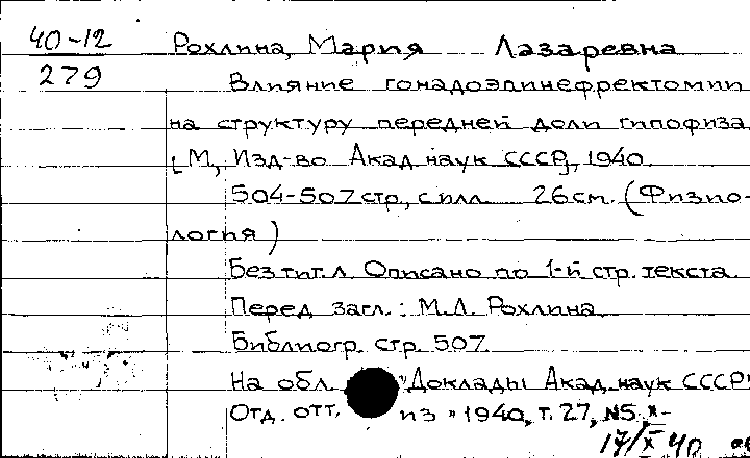 40-12
279
Рохлина, Мария Лазаревна
Влияние гонадоэпинефректомии
на структуру передней доли гипофиза
[М, Изд-во Акад. наук СССР], 1940.
504-507 стр, с илл. 26 см. (Физио-
логия)
Без тит. л. Описано по 1-й стр. текста.
Перед загл.: М.Л. Рохлина
Библиогр. стр. 507.
На обл. "Доклады Акад. наук СССР"
Отд. отт. из " 1940, т. 27, №5
17/X 40